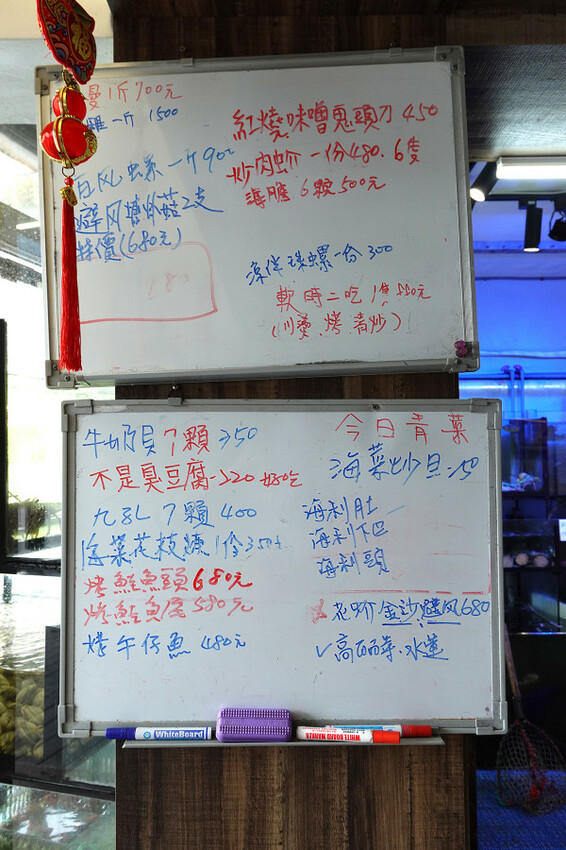 福
1斤700元
一斤 1500
風螺 一斤900
避风塘炒菇2支
特價(680元)
180
紅燒味噌鬼頭刀 450
炒肉蚧 一份480. 6隻
海膽 6顆500元
涼伴珠螺一份 300
軟時二吃 1隻550元
(川燙.烤.清炒)
牛奶貝7顆 350
不是臭豆腐-220 好吃
九孔 7顆 400
海菜花枝燒1份350
烤鮭魚頭680元
烤鮭魚尾580元
烤午仔魚 480元
今日青菜
海菜炒旦150
海利肚
海利下巴
海利頭
花蚧金沙.避风680
✓高丽菜.水蓮
WhiteBoard
WHITE BOARD MARKER